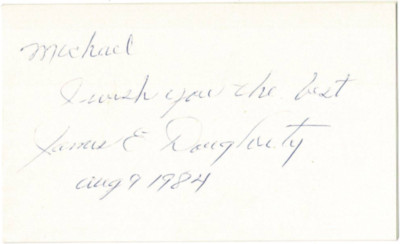 Michael
I wish you the best
James E Dougherty
aug 9 1984